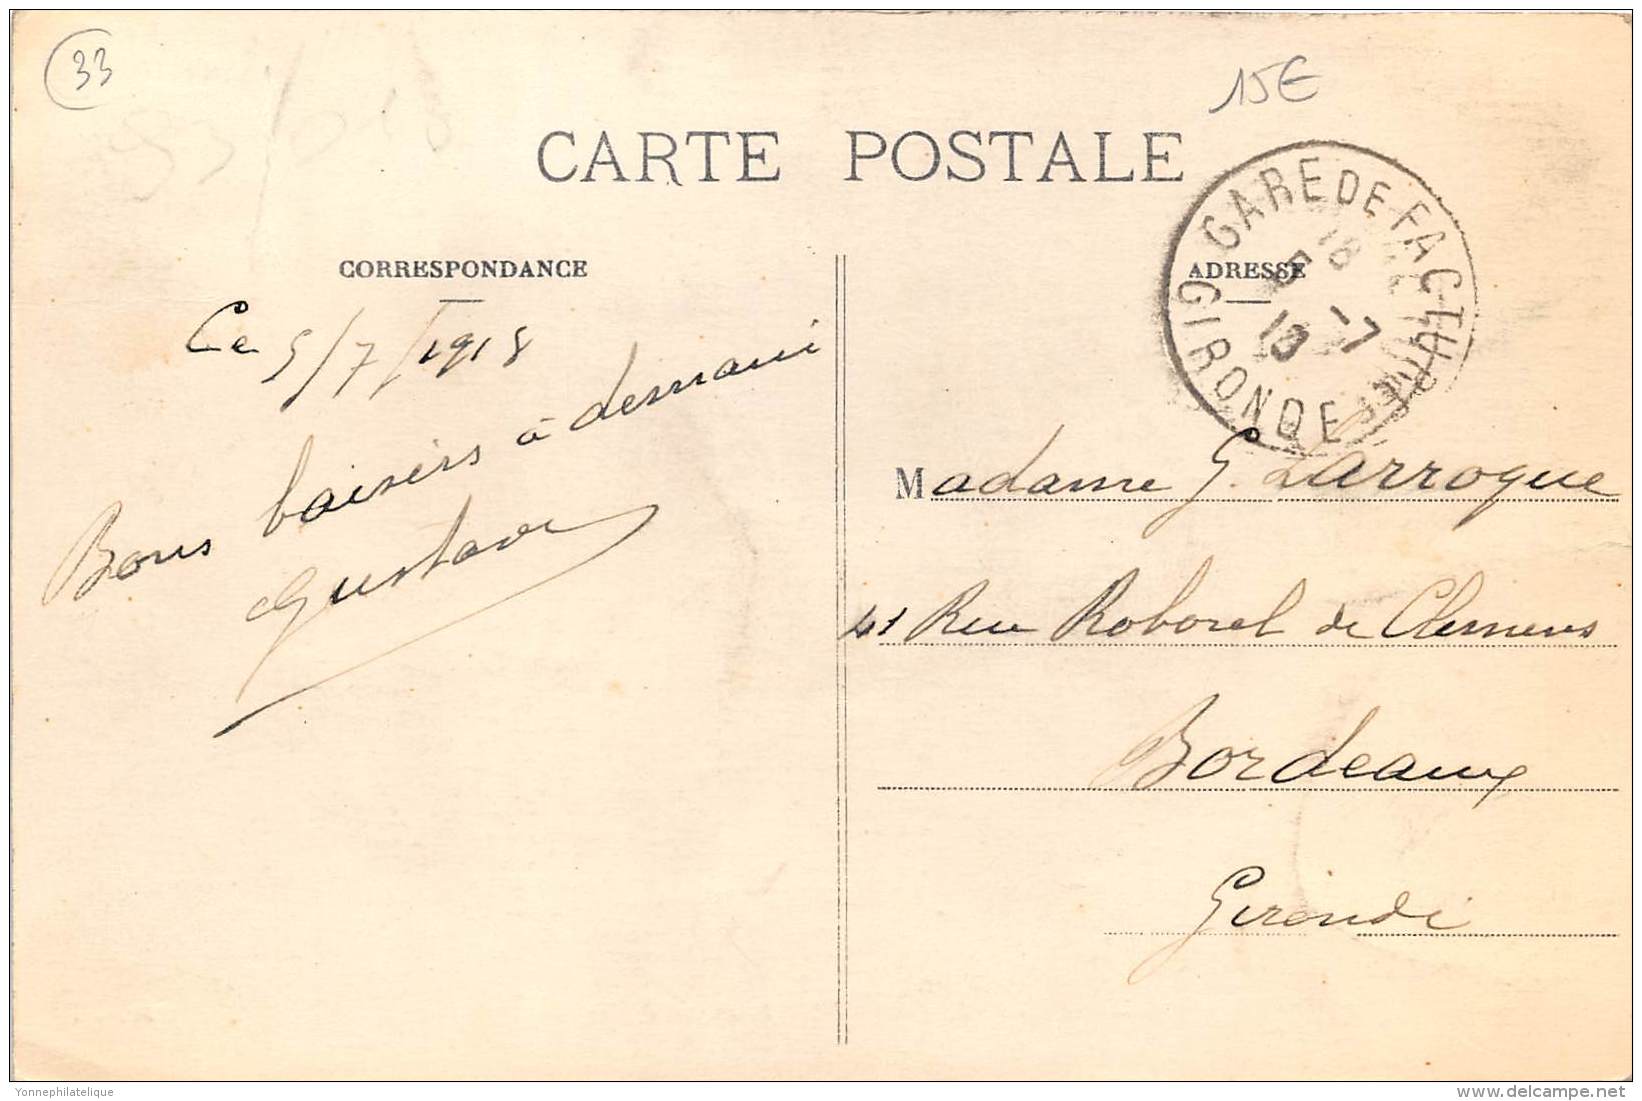 33
15€
CARTE POSTALE
CORRESPONDANCE
ADRESSE
GARE DE FACTURE
18
5 -7
18
GIRONDE
Ce 5/7/1918
Bons baisers à demain
Gustave
Madame G. Larroque
41 Rue Roborel de Clemens
Bordeaux
Gironde
Yonnephilatelique
delcampe.net